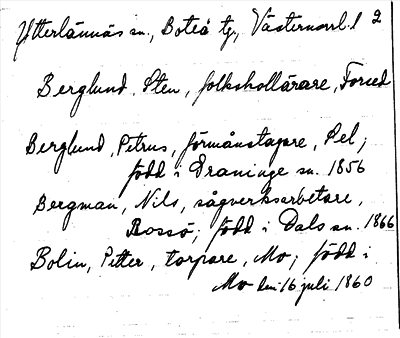 Ytterlännäs sn., Boteå tg., Västernorrl. l 2
Berglund, Sten, folkskollärare, Forsed
Berglund, Petrus, förmånstagare, Pel;
född i Graninge sn. 1856
Bergman, Nils, sågverksarbetare,
Bossö; född i Dals sn. 1866
Bolin, Petter, torpare, Mo; född i
Mo den 16 juli 1860